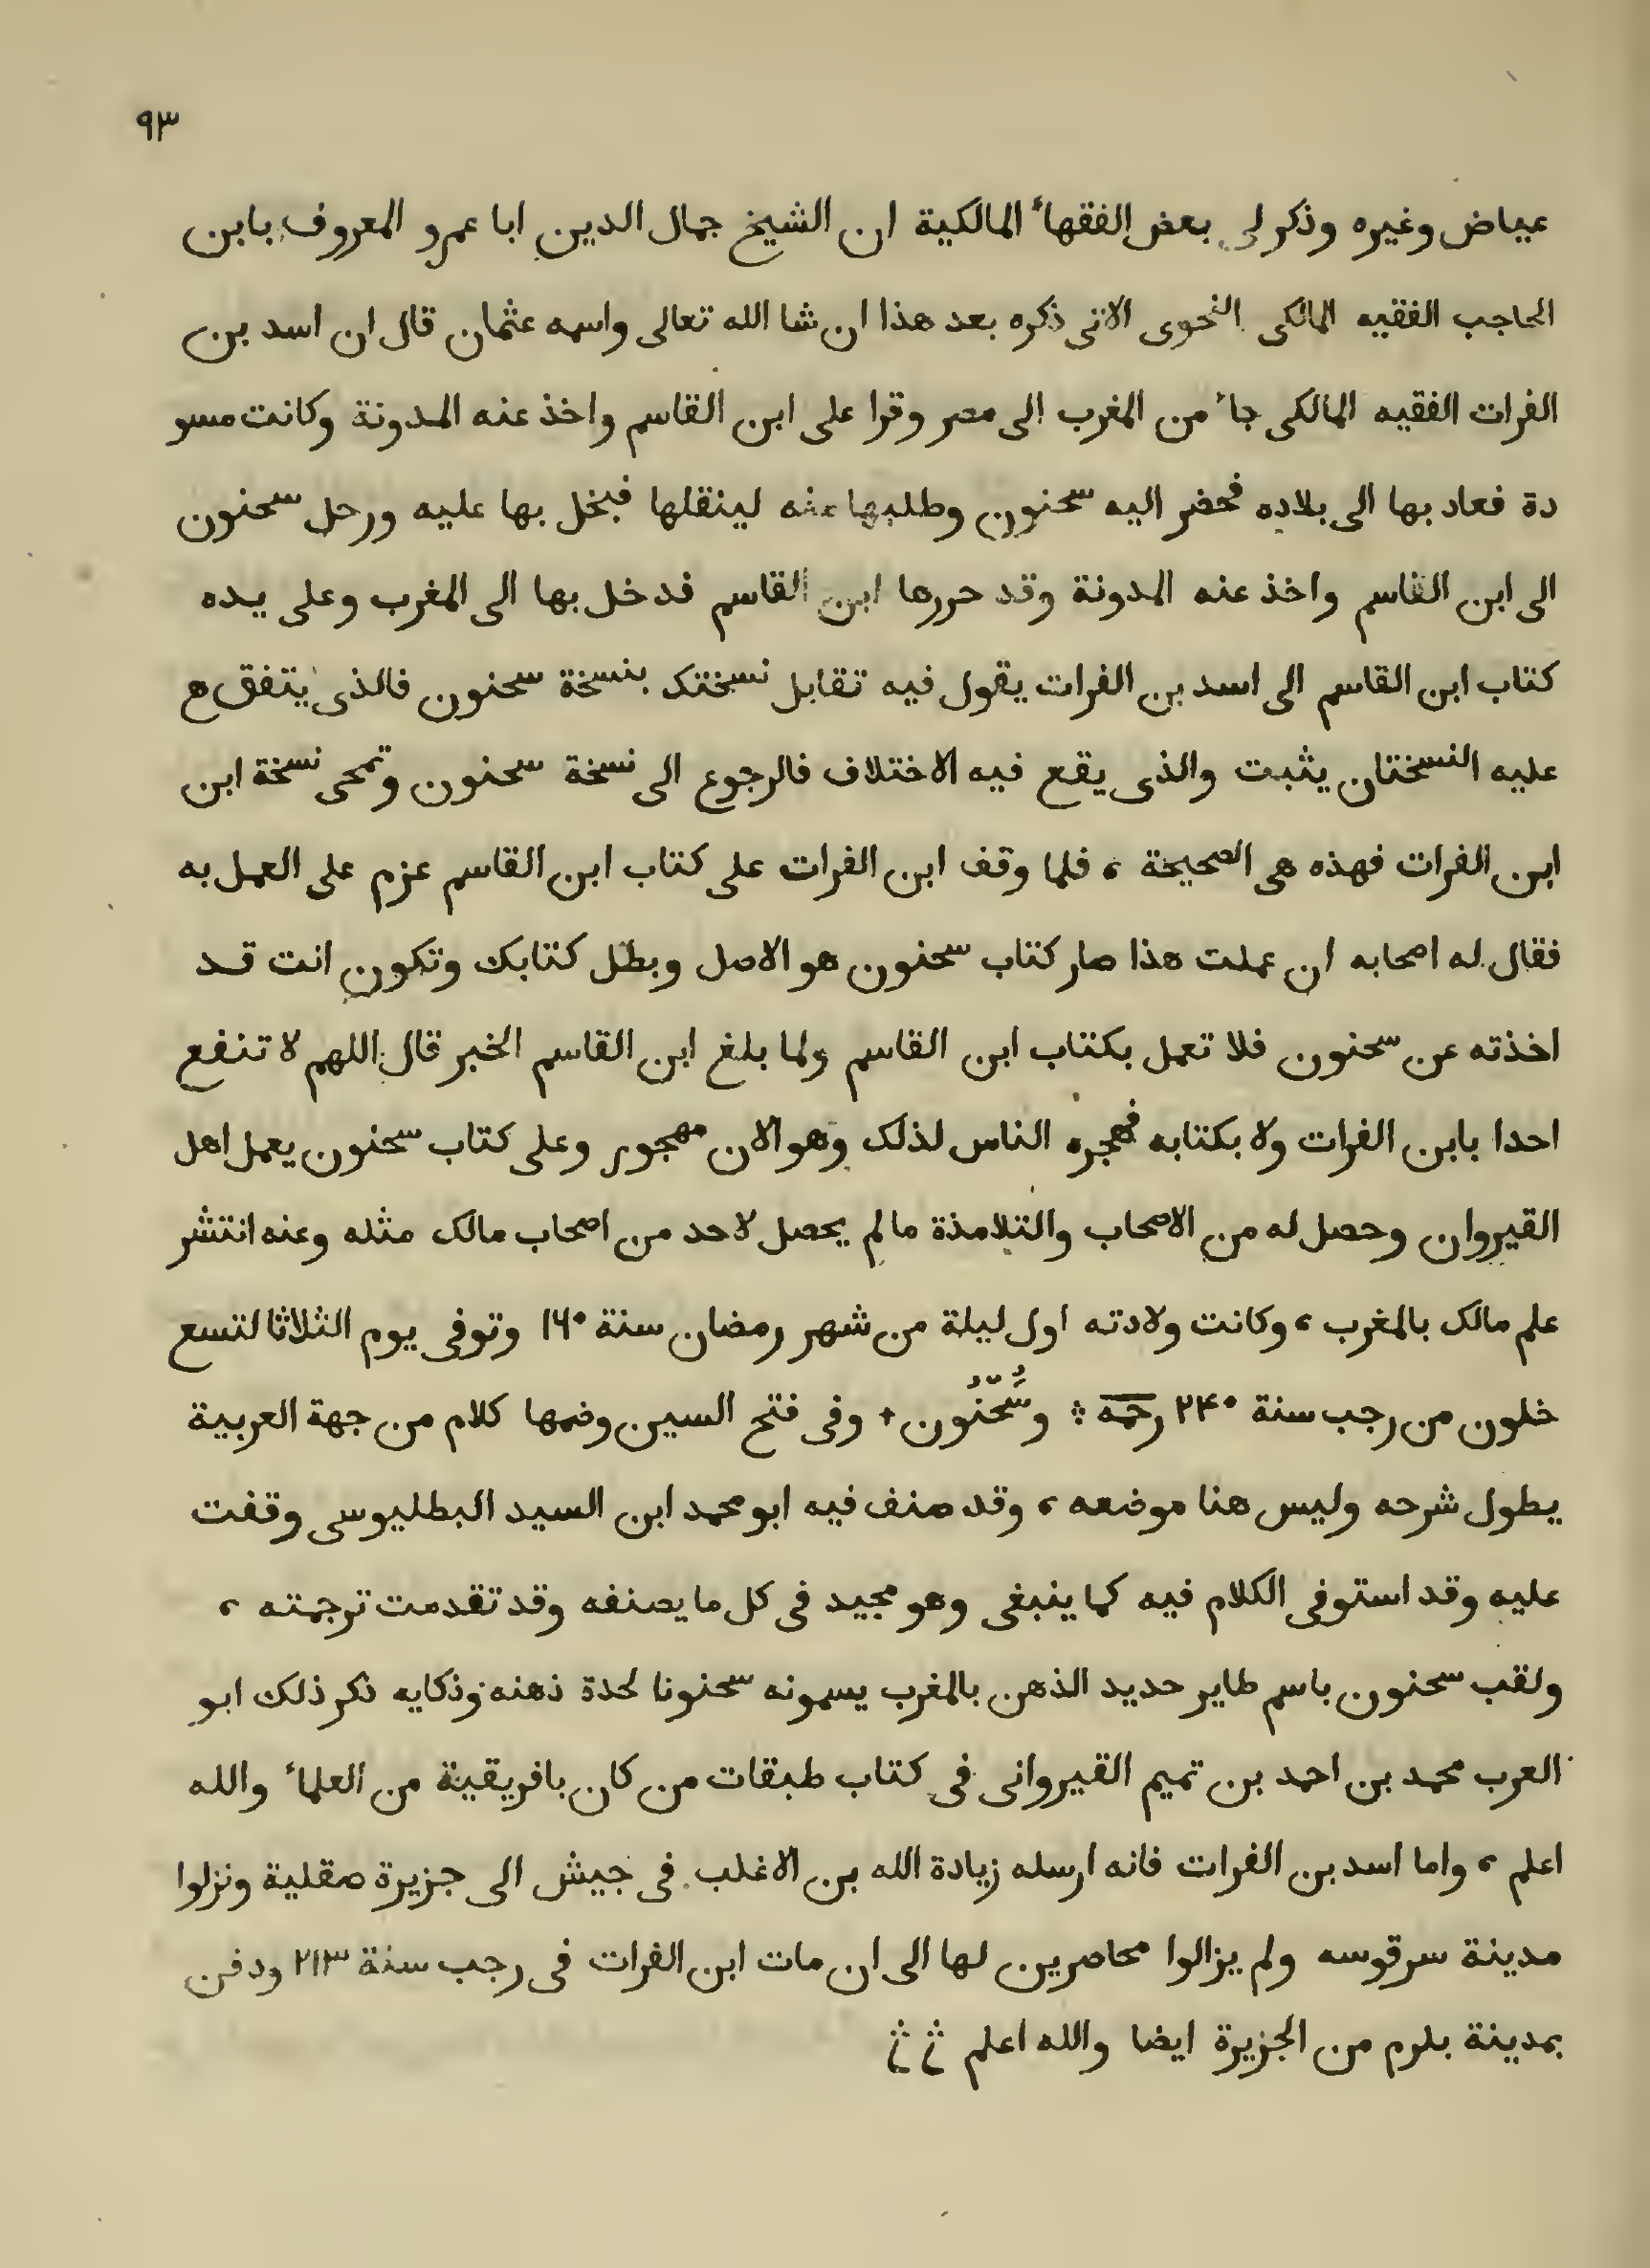 ٩٣
عياض وغيره وذكر لى بعض الفقهاء المالكية ان الشيخ جمال الدين ابا عمرو المعروف بابن
الحاجب الفقيه المالكى النحوى الاتى ذكره بعد هذا ان شا الله تعالى واسمه عثمان قال ان اسد بن
الفرات الفقيه المالكى جاء من المغرب الى مصر وقرا على ابن القاسم واخذ عنه المدونة وكانت مسو
دة فعاد بها الى بلاده فحضر اليه سحنون وطلبها منه لينقلها فبخل بها عليه ورحل سحنون
الى ابن القاسم واخذ عنه المدونة وقد حررها ابن القاسم فدخل بها الى المغرب وعلى يده
كتاب ابن القاسم الى اسد بن الفرات يقول فيه تقابل نسختك بنسخة سحنون فالذى يتفق ع
عليه النسختان يثبت والذى يقع فيه الاختلاف فالرجوع الى نسخة سحنون وتمحى نسخة ابن
ابن الفرات فهذه هى الصحيحة ، فلما وقف ابن الفرات على كتاب ابن القاسم عزم على العمل به
فقال له اصحابه ان عملت هذا صار كتاب سحنون هو الاصل وبطل كتابك وتكون انت قد
اخذته عن سحنون فلا تعمل بكتاب ابن القاسم ولما بلغ ابن القاسم الخبر قال اللهم لا تنفع
احدا بابن الفرات ولا بكتابه فهجره الناس لذلك وهو الان مهجور وعلى كتاب سحنون يعمل اهل
القيروان وحصل له من الاصحاب والتلامذة ما لم يحصل لاحد من اصحاب مالك مثله وعنه انتشر
علم مالك بالمغرب ، وكانت ولادته اول ليلة من شهر رمضان سنة ١٦٠ وتوفى يوم الثلاثا لتسع
خلون من رجب سنة ٢٤٠ رحمه ⁘ وسُحْنُون + وفى فتح السين وضمها كلام من جهة العربية
يطول شرحه وليس هنا موضعه ، وقد صنف فيه ابو محمد ابن السيد البطليوسى وقفت
عليه وقد استوفى الكلام فيه كما ينبغى وهو مجيد فى كل ما يصنفه وقد تقدمت ترجمته ،
ولقب سحنون باسم طاير حديد الذهن بالمغرب يسمونه سحنونا لحدة ذهنه وذكايه ذكر ذلك ابو
العرب محمد بن احمد بن تميم القيروانى فى كتاب طبقات من كان بافريقية من العلماء والله
اعلم ، واما اسد بن الفرات فانه ارسله زيادة الله بن الاغلب فى جيش الى جزيرة صقلية ونزلوا
مدينة سرقوسه ولم يزالوا محاصرين لها الى ان مات ابن الفرات فى رجب سنة ٢١٣ ودفن
بمدينة بلرم من الجزيرة ايضا والله اعلم